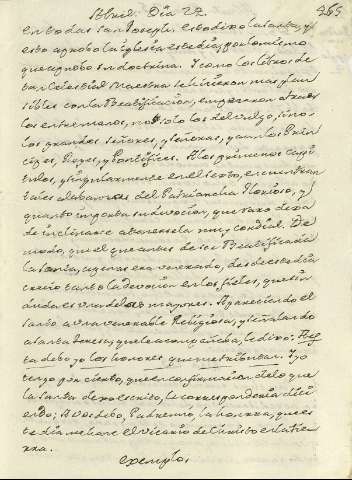 Abril. Dia 22. 265
en todas San Joseph. Esto dixo la santa, y
esto aprobò la Iglesia este dia, por lo mismo
que aprobò su doctrina. Y como los libros de
tan Celestial Maestra se hicieron mas plau
sibles con la Beatificacion, empezaron a traer
los entre manos, no solo los del vulgo, sino
los grandes señores, y señoras, y aun los Prin
cipes, Reyes, y Pontifices. A los primeros capi
tulos, y singularmente en el sexto, encuentran
tales alabanzas del Patriarcha Glorioso, y
quanto importa su devocion, que raro dexa
de inclinarse a tenersela muy cordial. De
modo, que el que antes de ser Beatificada
la Santa, apenas era venerado, desde este dia
creciò tanto la devocion en los fieles, que sin
duda es una de las mayores. Apareciendo el
Santo a una venerable Religiosa, y señalando
a la santa Teresa, que le acompañaba, le dixo: A es
ta debo yo los honores que me tributan. Y yo
tengo por cierto, que en confirmacion de lo que
la Santa dexo escrito, le corresponderia dici
endo: A vos debo, Padre mio, la honrra, que es
te dia me hace el Vicario de Christo en la tie
rra.
exemplo,